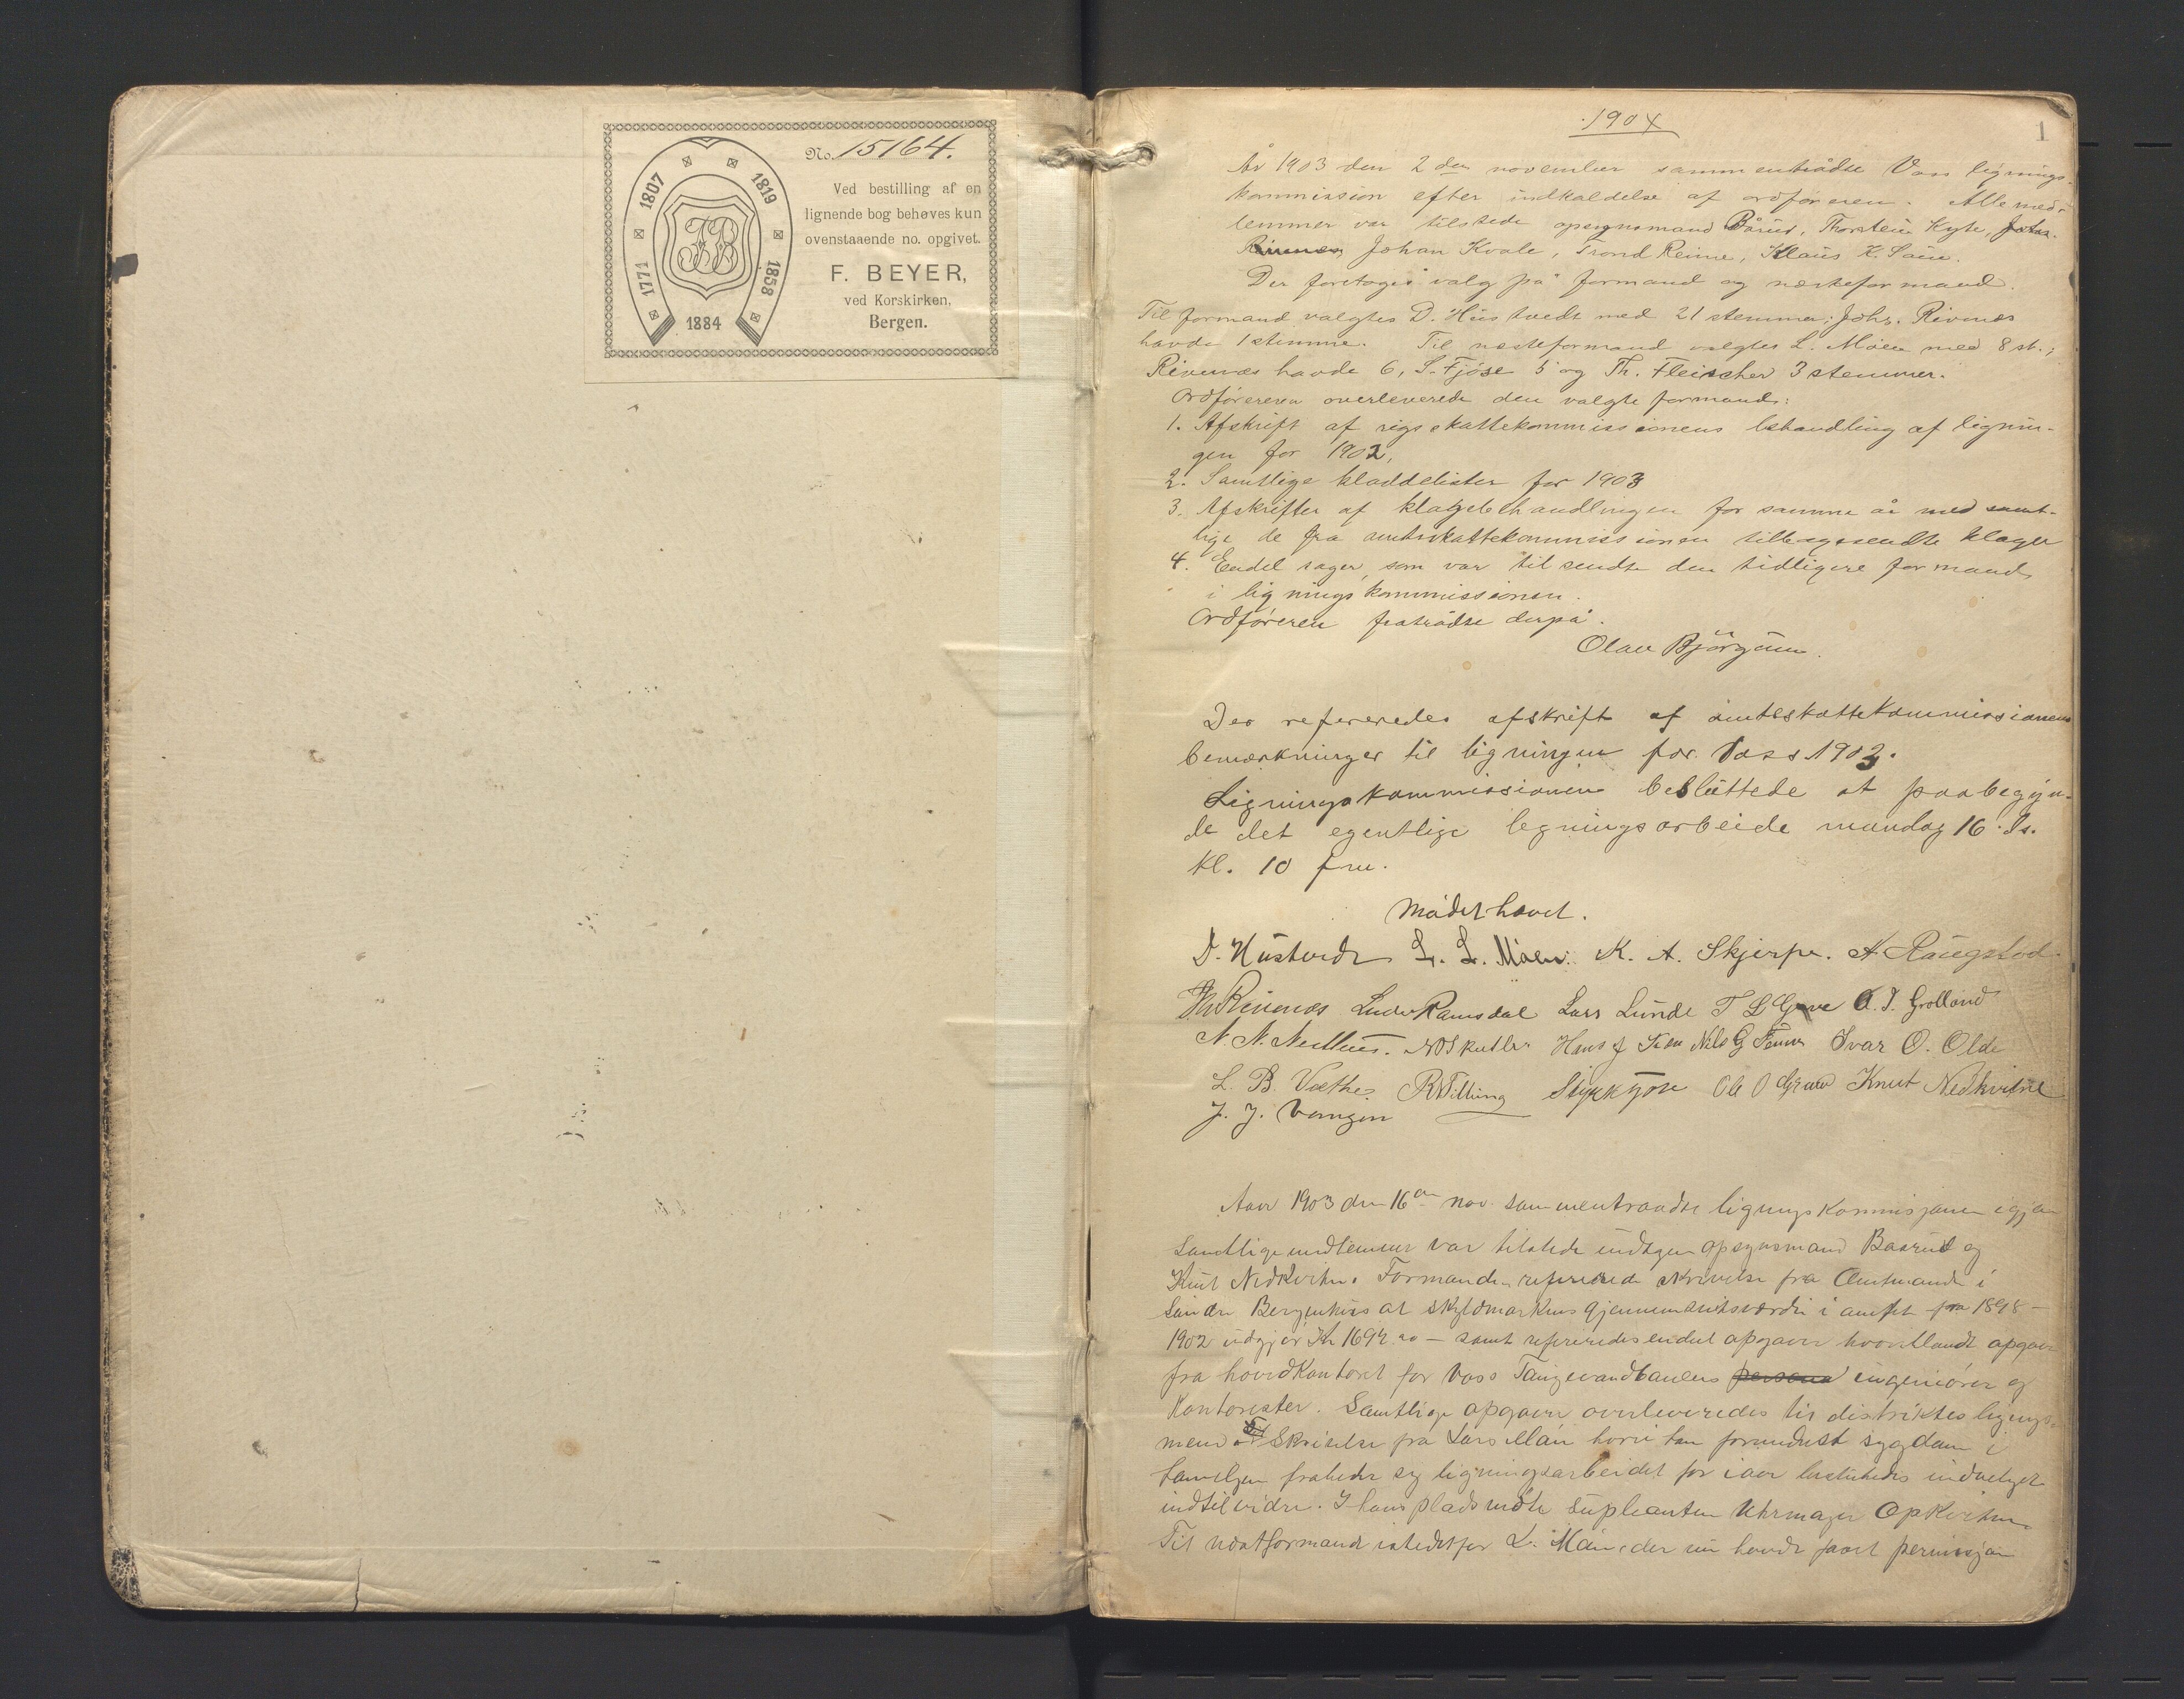 No. 15164.
Ved bestilling af en
lignende bog behøves kun
ovenstaaende no. opgivet.
F. BEYER,
ved Korskirken,
Bergen.
1771 1807 1819 1858
1884
FB
1904
1
År 1903 den 2den november sammentrådte Voss lignings-
kommission efter indkaldelse af ordføreren. Alle med-
lemmer var tilstede opsynsmand Bårud, Thorstein Kyte, Johs.
Rivenæs, Johan Kvale, Trond Reime, Klaus K. Saue.
Der foretoges valg på formand og næsteformand.
Til formand valgtes D. Hustvedt med 21 stemmer; Johs. Rivenæs
havde 1 stemme. Til næsteformand valgtes L. Måen med 8 st.;
Rivenæs havde 6, S. Fjöse 5 og Th. Fleischer 3 stemmer.
Ordføreren overleverede den valgte formand:
1. Afskrift af rigsskattekommissionens behandling af lignin-
gen for 1902,
2. Samtlige kladdelister for 1903
3. Afskrifter af klagebehandlingen for samme år med samt-
lige de fra amtsskattekommissionen tilbagesendte klager
4. Endel sager, som var tilsendt den tidligere formand
i ligningskommissionen.
Ordføreren fratrådte derpå.
Olav Bjørgum.
Der refereredes afskrift af amtsskattekommissionens
bemærkninger til ligningen for Voss 1903.
Ligningskommissionen besluttede at paabegyn-
de det egentlige ligningsarbeide mandag 16. ds.
kl. 10 fm.
Mødet hævet.
D. Hustvedt L. L. Måen. K. A. Skjerpe. A Raugstad
Joh Rivenæs Ludv Ramsdal Lars Lunde T L Gjerve O. I. Grolland
N. N. Nedthus. Hans J Nils G Ivar O. Olde
L. B. Væthe R Tilling Ole O Knut Nedkvitne
J. J. Vangen
Aar 1903 den 16de nov. sammentraadte ligningskommisjonen igjen
Samtlige medlemmer var tilstede undtagen opsynsmand Baarud og
Knut Nedkvitne. Formanden refererede skrivelse fra Amtmanden i
Søndre Bergenhus at skyldmarkens gjennemsnitsværdi i amtet fra 1898 -
1902 udgjør Kr 1694.00 - samt refereredes endel opgaver hvoriblandt opgave
fra hovedkontoret for Voss Taugevandbanens persona ingeniører og
Kontorister. Samtlige opgaver overleveredes til distriktes lignings-
mænd. Skrivelse fra Lars Måen hvori han formedelst sygdom i
familjen frabeder sig ligningsarbeidet for iaar besluttedes indvilget
indtilvidre. I hans plads mødte supleanten Uhrmager Opkvitne
Til næstformand istedetfor L. Måen, der nu havde faaet permisjon